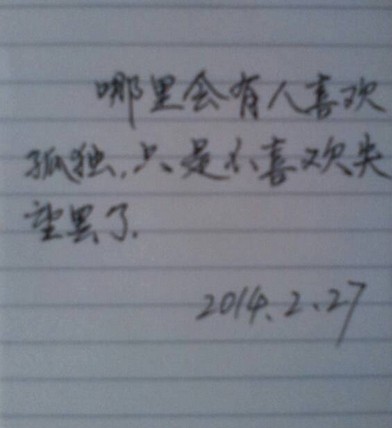 哪里会有人喜欢
孤独,只是不喜欢失
望罢了.
2014.2.27